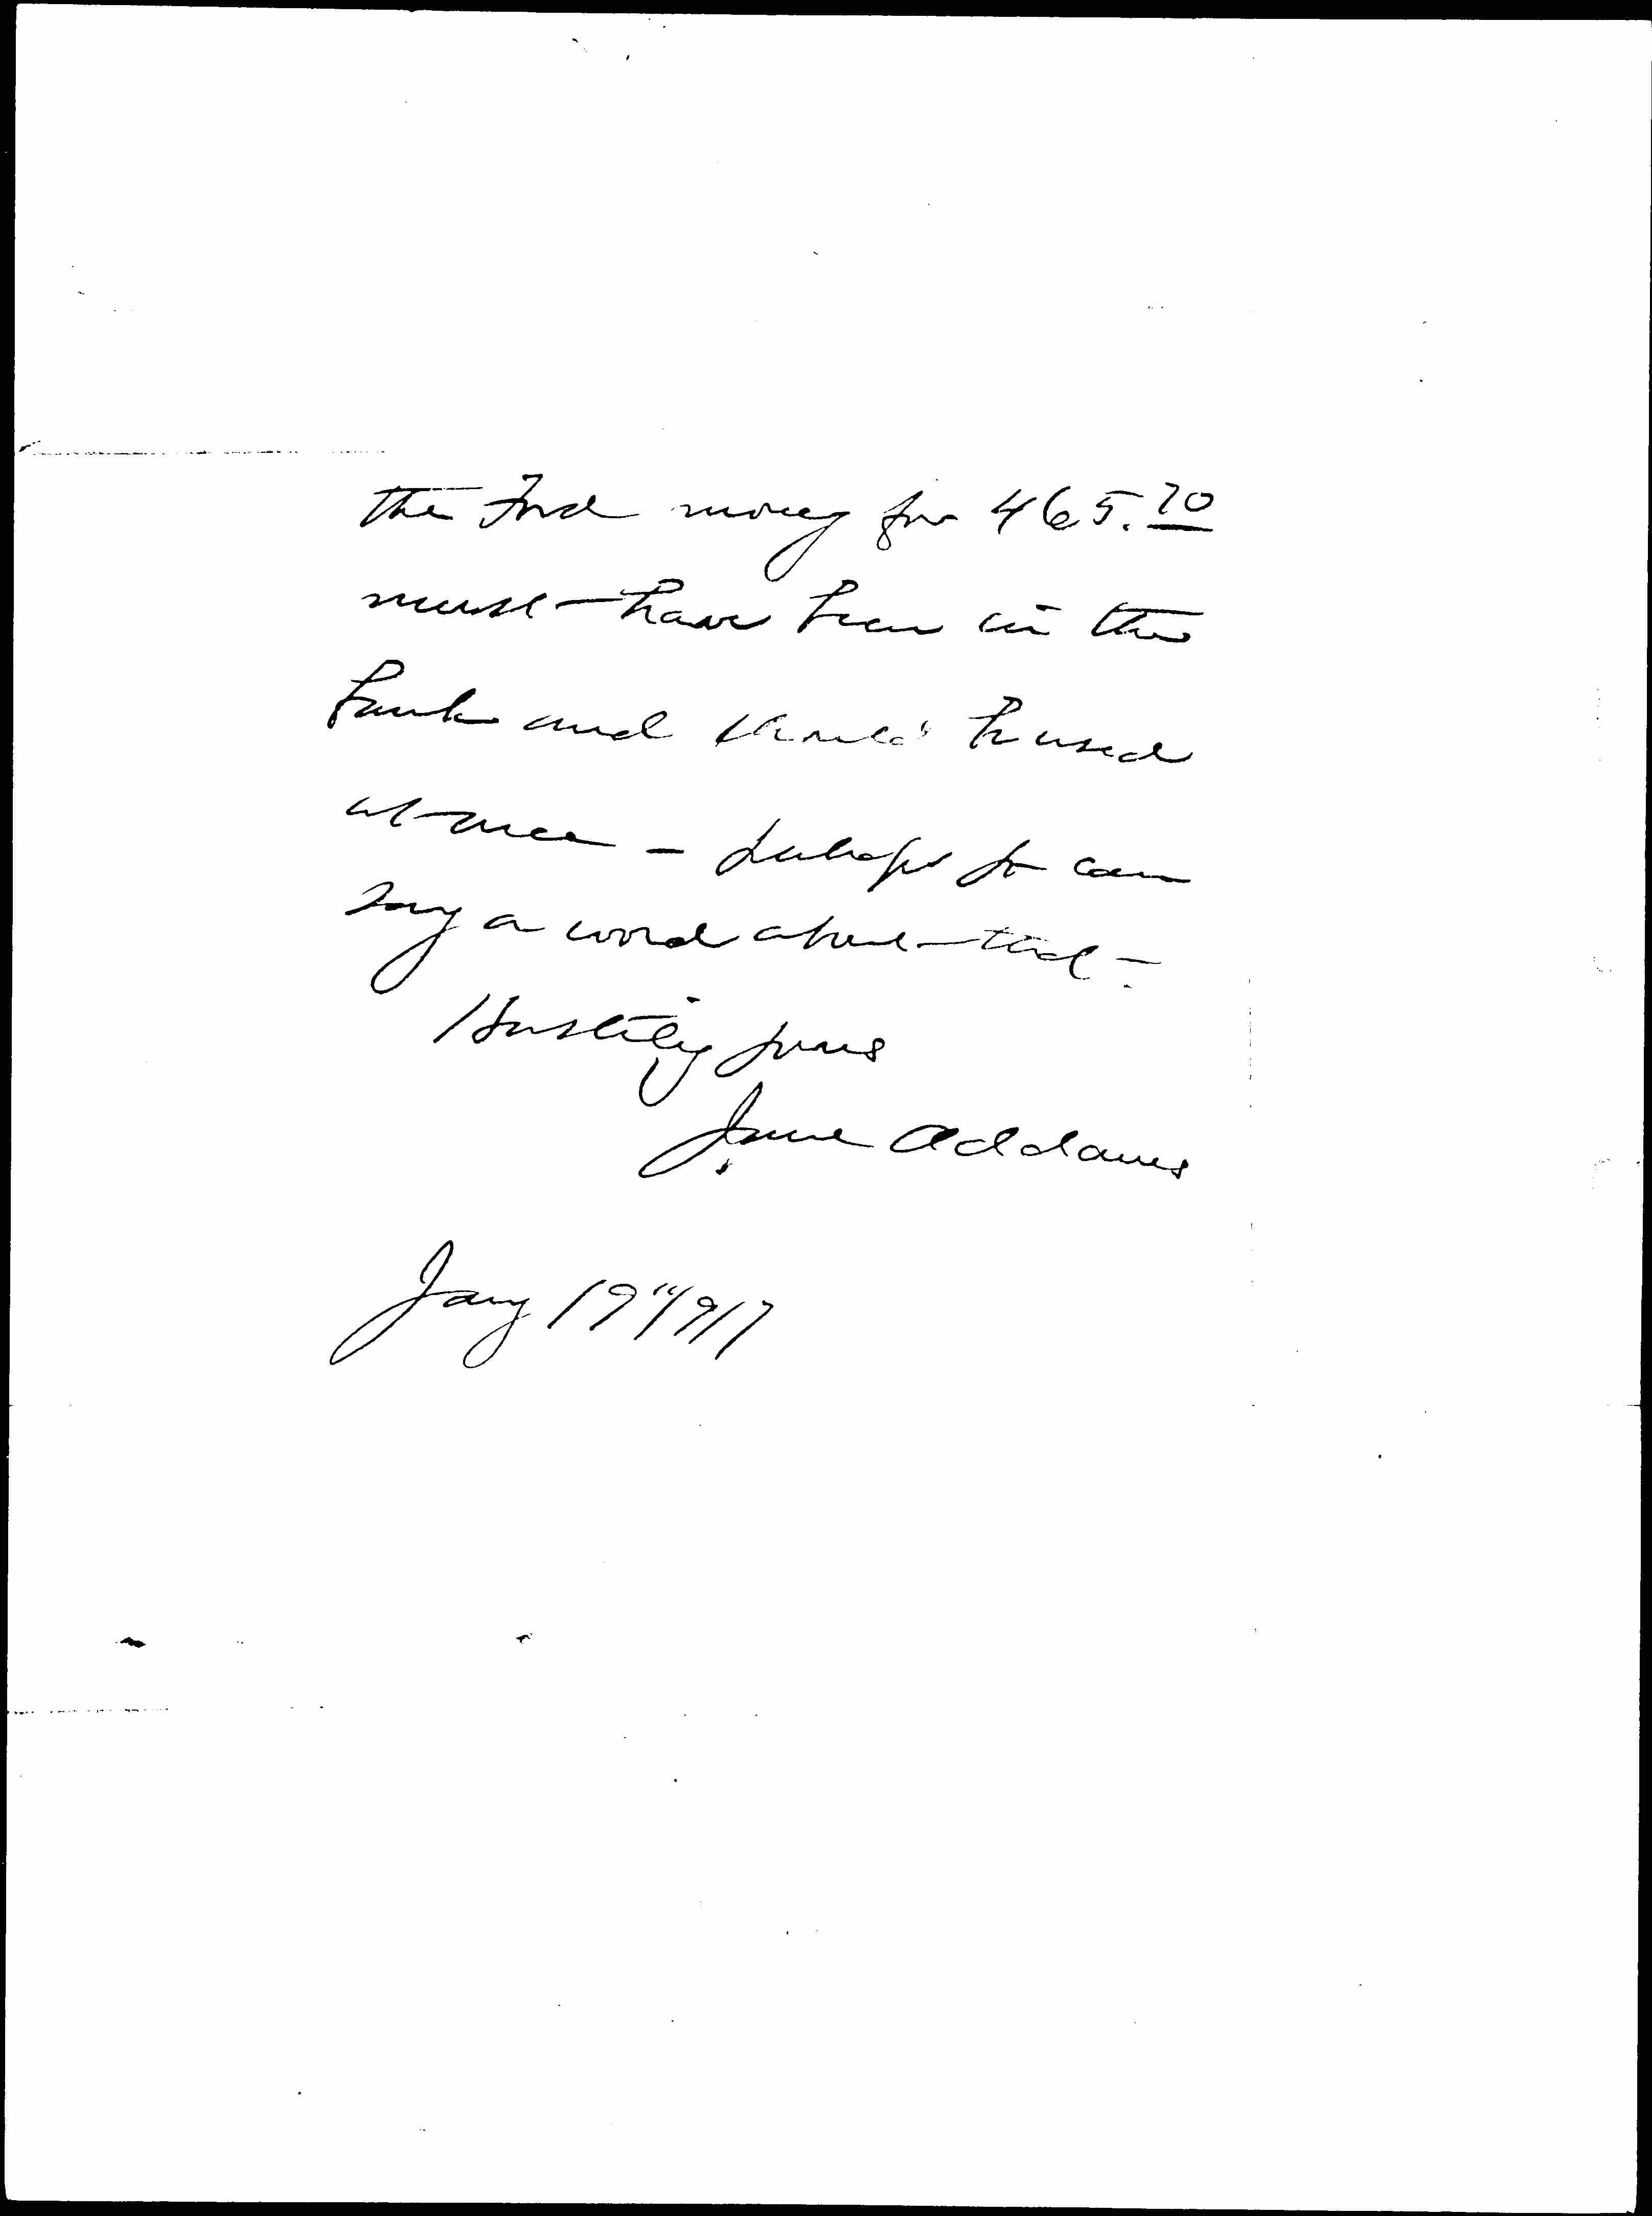 the Ford money for 465.70
must have been in the
bank and should be used
at once – perhaps you can
say a word about that –
Hastily yours
Jane Addams
Jany 19" 1917